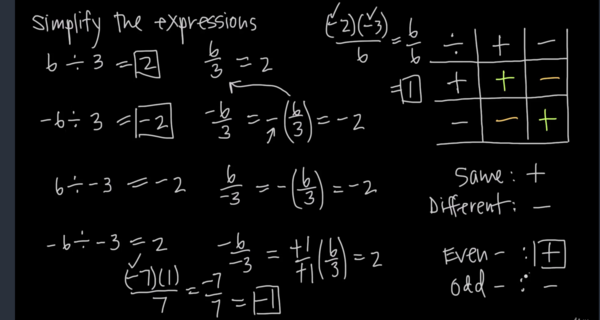 Simplify the expressions
6 ÷ 3 = 2
6/3 = 2
-6 ÷ 3 = -2
-6/3 = -(6/3) = -2
6 ÷ -3 = -2
6/-3 = -(6/3) = -2
-6 ÷ -3 = 2
-6/-3 = +1/+1 (6/3) = 2
(-7)(1)/7 = -7/7 = -1
(-2)(-3)/6 = 6/6
= 1
÷ + -
+ + -
- - +
Same: +
Different: -
Even - : +
Odd - : -